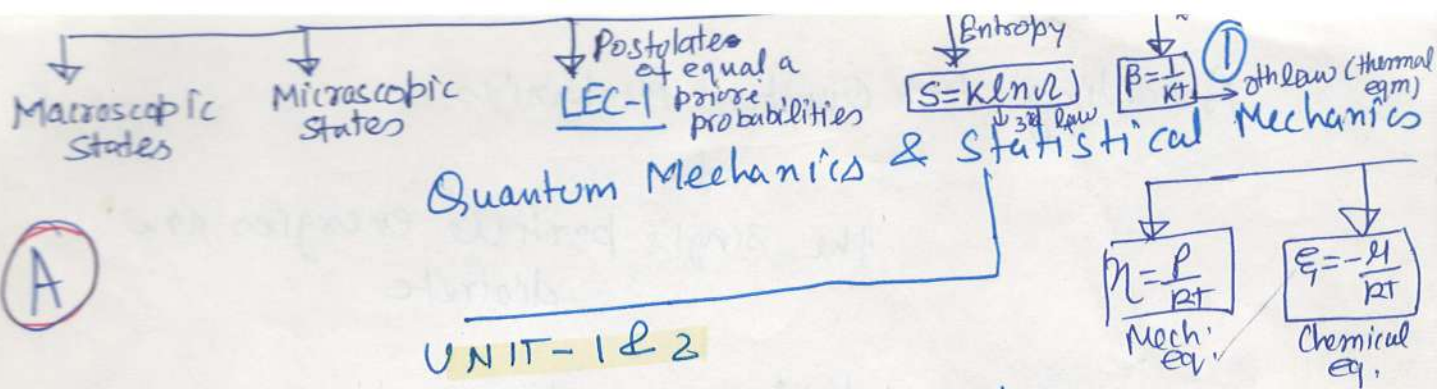 Macroscopic States
Microscopic States
Postulates of equal a priori probabilities
LEC-1
Entropy
S=KlnΩ
↓ 3rd law
β=1/KT → 0th law (thermal eqm)
①
Quantum Mechanics & Statistical Mechanics
A
η=P/KT
Mech. eq.
ξ=-μ/KT
Chemical eq.
UNIT-1&2